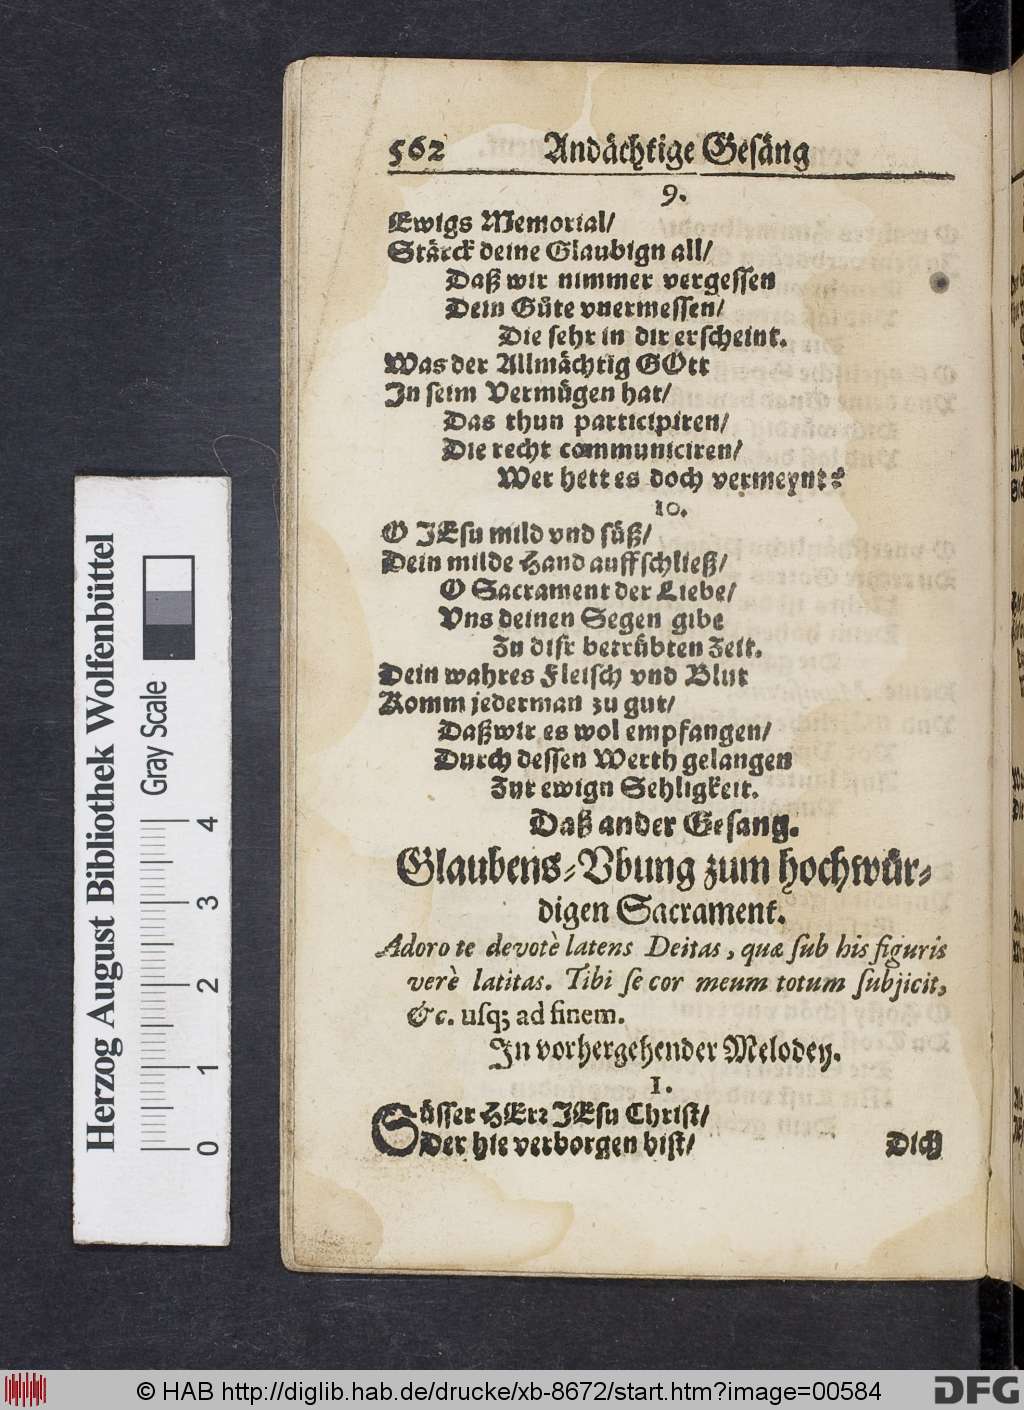 562 Andächtige Gesäng
9.
Ewigs Memorial/
Stärck deine Glaubign all/
Daß wir nimmer vergessen
Dein Güte vnermessen/
Die sehr in dir erscheint.
Was der Allmächtig GOtt
In seim Vermügen hat/
Das thun participiren/
Die recht communiciren/
Wer hett es doch vermeynt?
10.
O JEsu mild vnd süß/
Dein milde Hand auffschließ/
O Sacrament der Liebe/
Vns deinen Segen gibe
Zu diser betrübten Zeit.
Dein wahres Fleisch vnd Blut
Komm jederman zu gut/
Daß wir es wol empfangen/
Durch dessen Werth gelangen
Zur ewign Sehligkeit.
Daß ander Gesang.
Glaubens-Vbung zum hochwür-
digen Sacrament.
Adoro te devotè latens Deitas, quæ sub his figuris
verè latitas. Tibi se cor meum totum subjicit,
&c. usq; ad finem.
In vorhergehender Melodey.
1.
Süsser HErr JEsu Christ/
Der hie verborgen bist/
Dich
Herzog August Bibliothek Wolfenbüttel
Gray Scale
0 1 2 3 4
© HAB http://diglib.hab.de/drucke/xb-8672/start.htm?image=00584
DFG